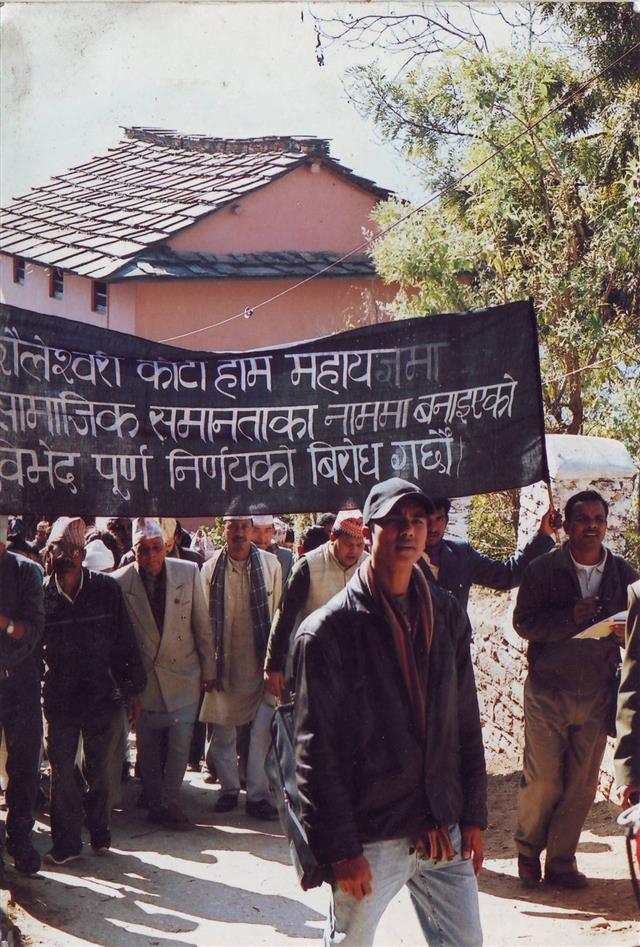 शैलेश्वरी कोटा होम महायज्ञमा
सामाजिक समानताका नाममा बनाइएको
विभेद पूर्ण निर्णयको बिरोध गर्छौं।